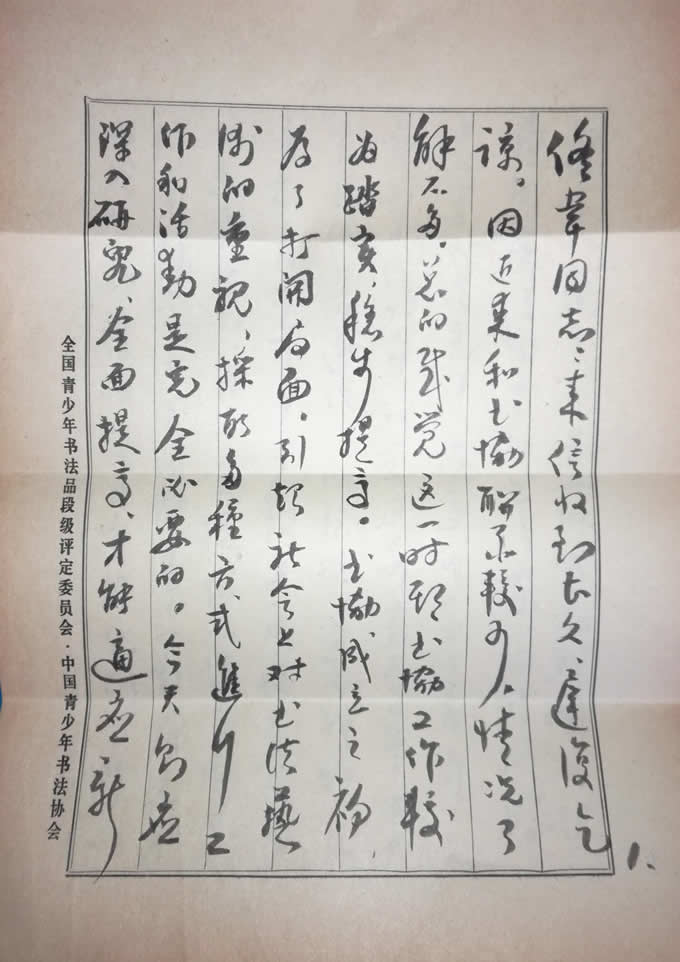 佟韦同志：来信收到长久、迟复乞
谅。因近来和书协联系较少，情况了
解不多，总的感觉这一时期书协工作较
为踏实，稳步提高。书协成立之初，
为了打开局面，引起社会上对书法艺
术的重视，採取多种方式进行工
作和活动是完全必要的。今天则应
深入研究、全面提高、才能适应新
全国青少年书法品段级评定委员会·中国青少年书法协会
1.